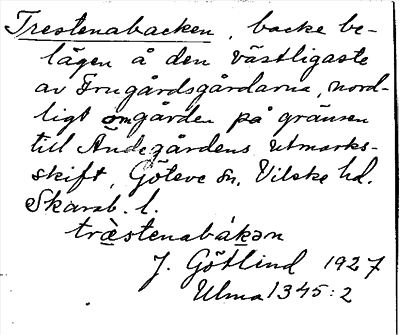 Trestenabacken, backe be-
lägen å den västligaste
av Frugårdsgårdarna, nord-
ligt om gården på gränsen
till Ändegårdens utmarks-
skift, Göteve sn, Vilske hd.
Skarab. l.
træ̀stenabák̲ən
J. Götlind 1927
Ulma 1345:2